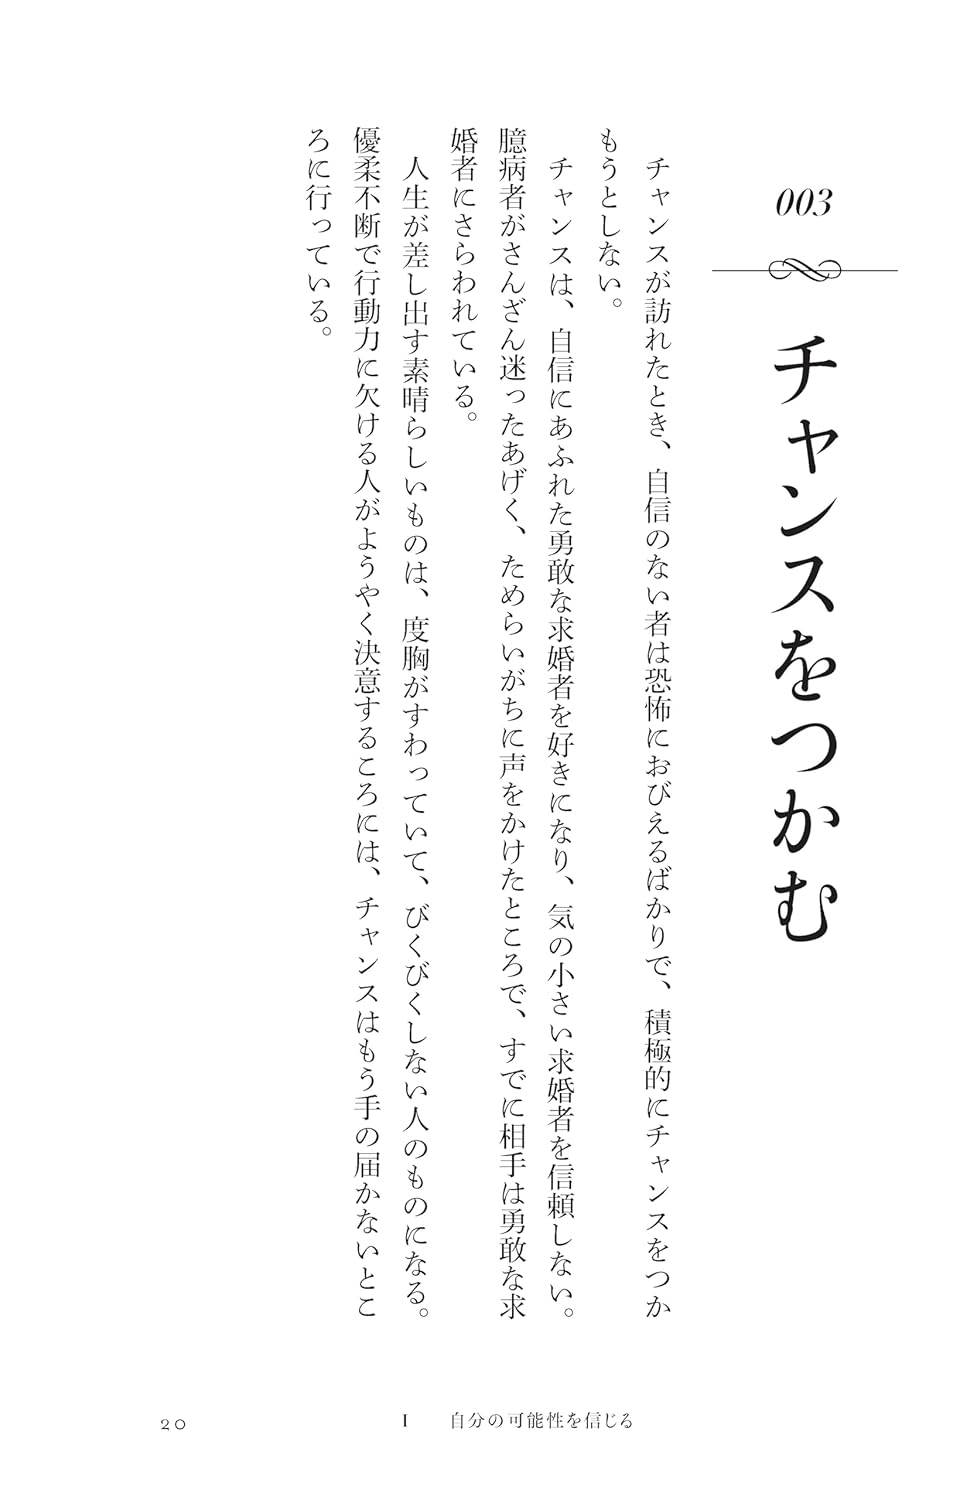 003
チャンスをつかむ
チャンスが訪れたとき、自信のない者は恐怖におびえるばかりで、積極的にチャンスをつか
もうとしない。
チャンスは、自信にあふれた勇敢な求婚者を好きになり、気の小さい求婚者を信頼しない。
臆病者がさんざん迷ったあげく、ためらいがちに声をかけたところで、すでに相手は勇敢な求
婚者にさらわれている。
人生が差し出す素晴らしいものは、度胸がすわっていて、びくびくしない人のものになる。
優柔不断で行動力に欠ける人がようやく決意するころには、チャンスはもう手の届かないとこ
ろに行っている。
20
I 自分の可能性を信じる